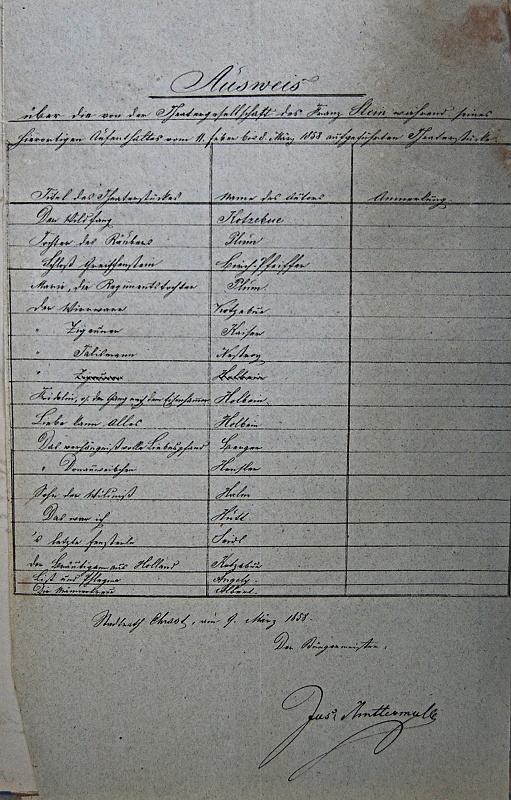 Ausweis
über die von der Theatergesellschaft des Franz Stein während seines
hierortigen Aufenthaltes vom 11. Feber bis 8. März 1858 aufgeführten Theaterstücke.
Titel des Theaterstückes Name des Autors Anmerkung
Der Wildfang Kotzebue
Tochter des Räubers Plüm
Schloß Greiffenstein Birch-Pfeiffer
Marie, die Regimentstochter Plüm
Der Wirrwarr Kotzebue
" Zigeuner Kaiser
" Talismann Nestroy
" Zigeuner Holbein
Fridolin, o. der Gang nach dem Eisenhammer Holbein
Liebe kann Alles Holbein
Das verhängnißvolle
" Donauweibchen Hensler
Sohn der Wildniß Halm
Das war ich Hutt
's letzte Fensterln Seidl
Der Bräutigam aus Holland Kotzebue
List und Phlegma Angely
Die
Stadtrath Chrast, am 9. März 1858.
Der Bürgermeister: